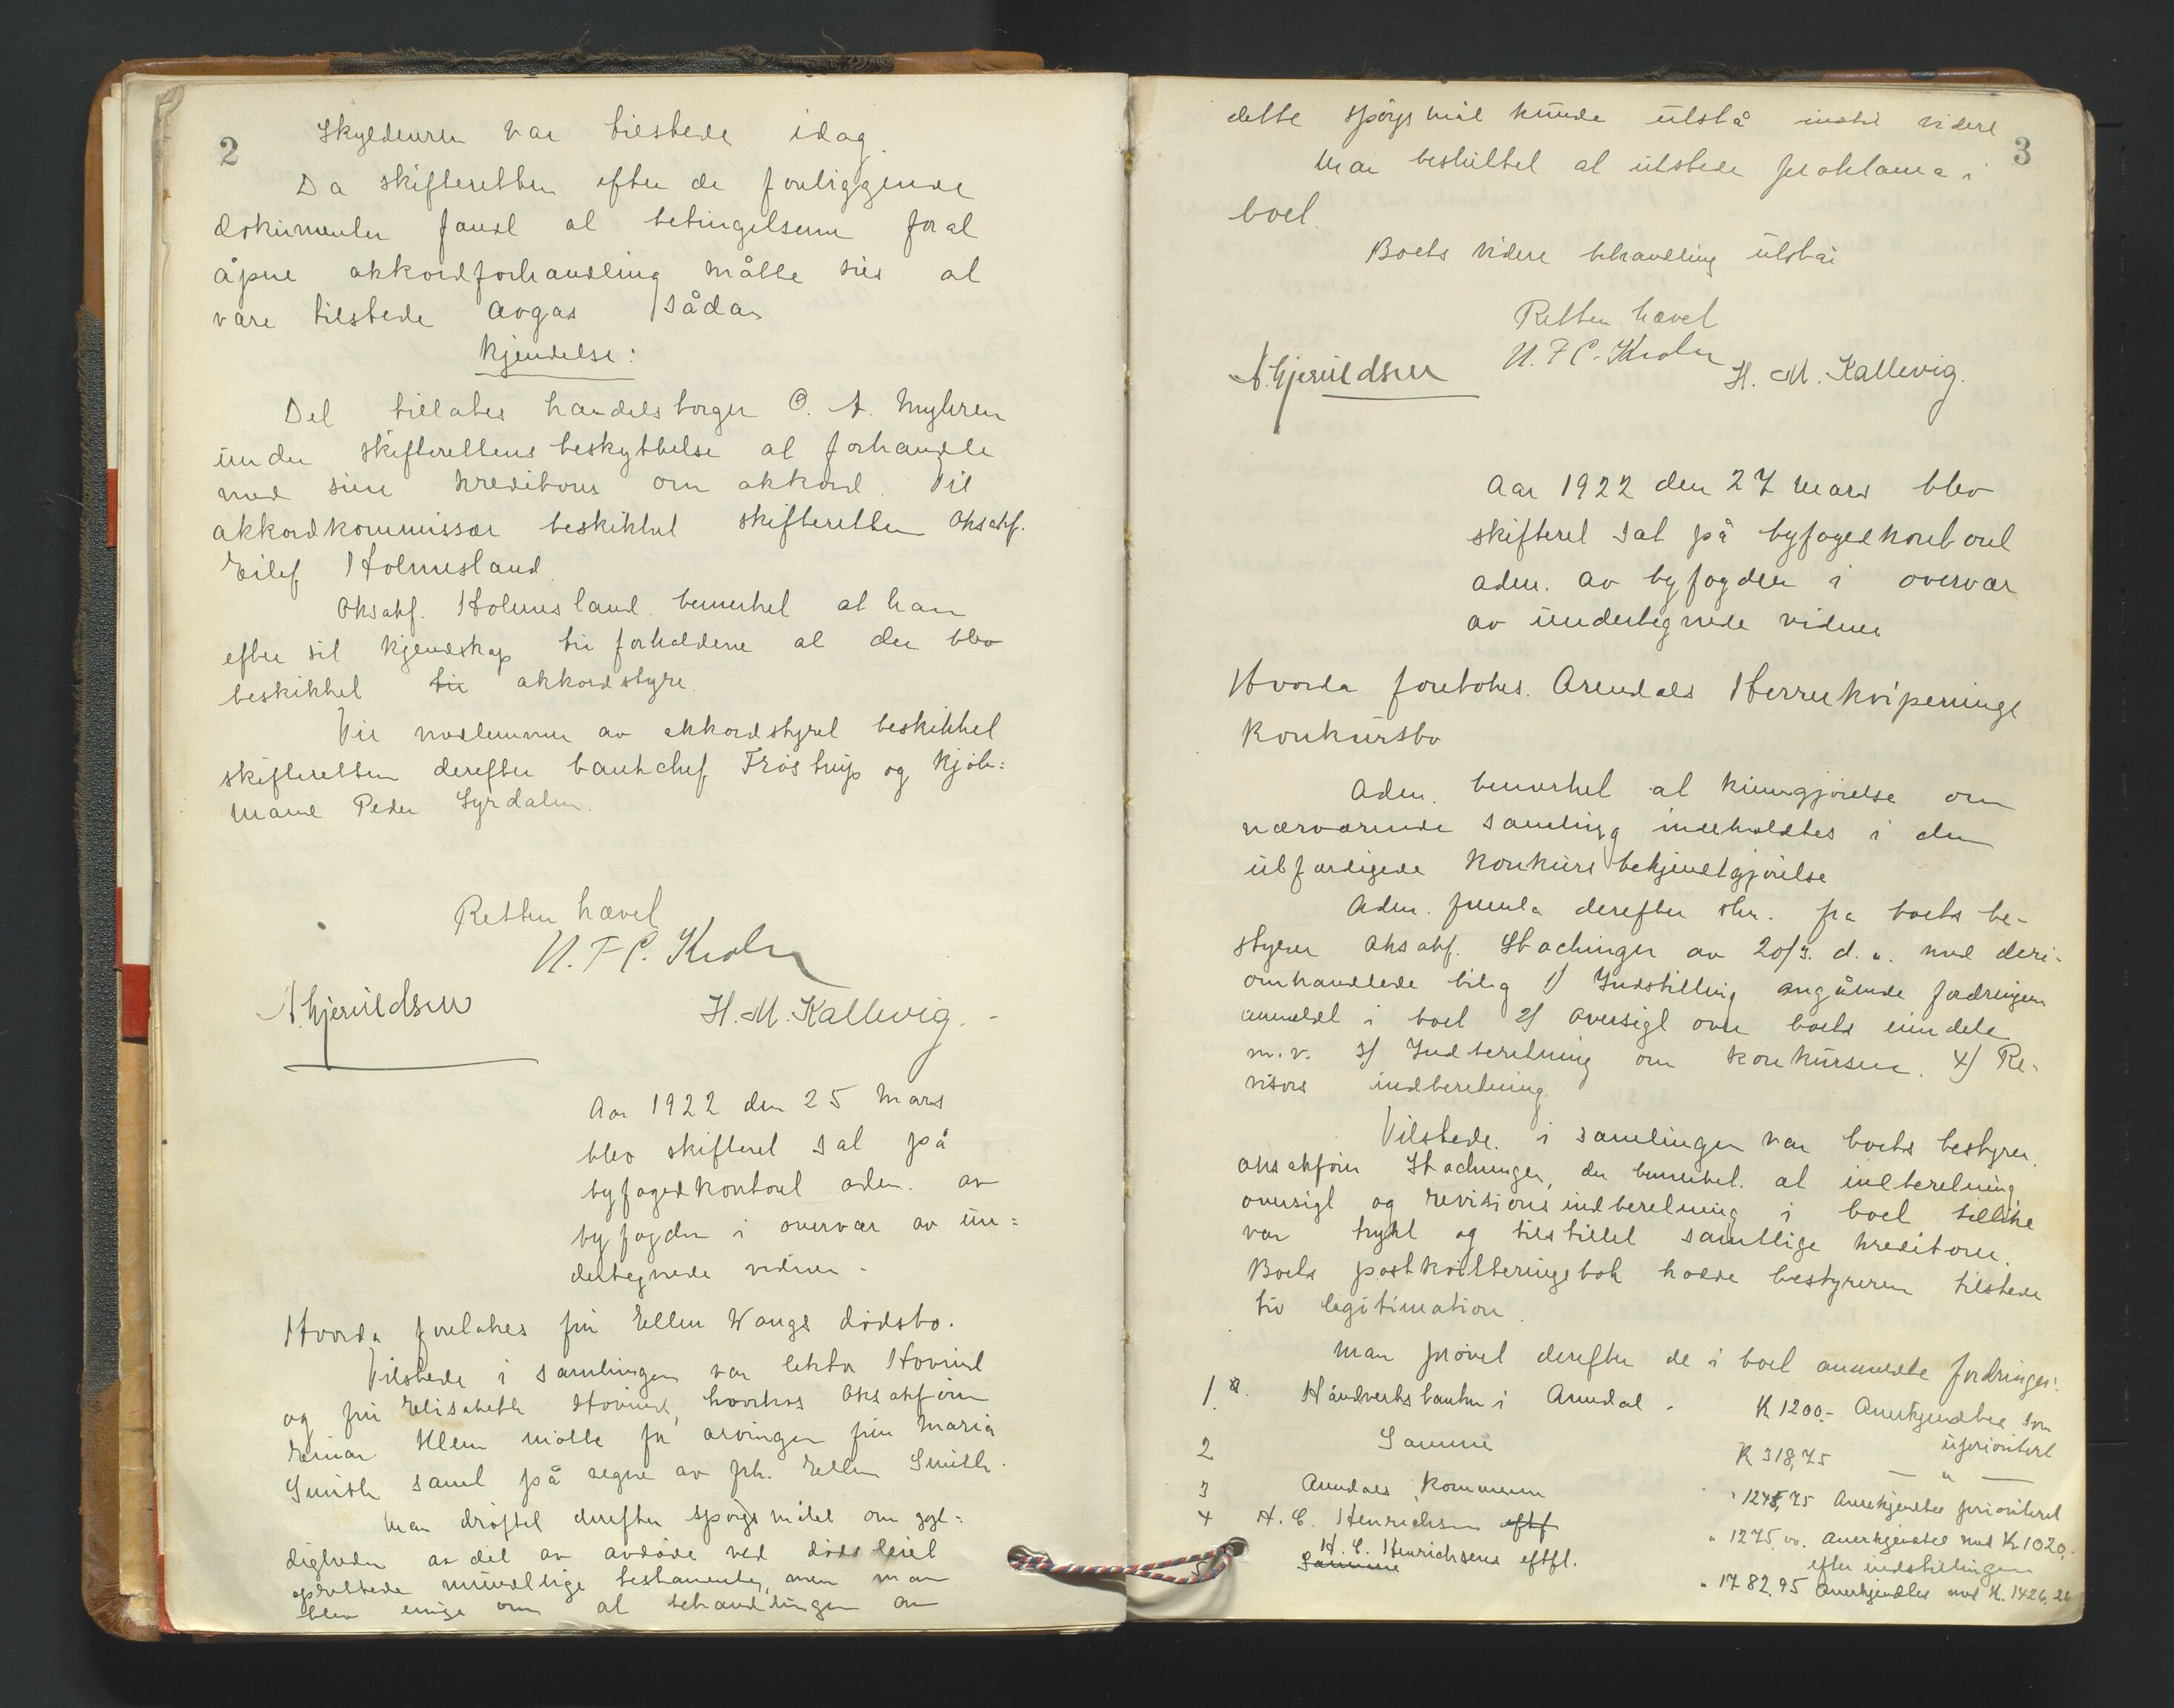 2
Skyldneren var tilstede idag.
Da skifteretten efter de foreliggende
dokumenter fandt at betingelserne for at
åpne akkordforhandling måtte sies at
være tilstede avgas sådan
Kjendelse:
Det tillates handelsborger O. A. Myhren
under skifterettens beskyttelse at forhandle
med sine kreditorer om akkord. Til
akkordkommissær beskikket skifteretten oksakf.
Eilef Holmesland
Oksakf. Holmesland bemerket at han
efter sit kjendskap til forholdene at der blev
beskikket til akkordstyre.
Til medlemmer av akkordstyret beskikket
skifteretten derefter bankchef Frøstrup og kjøb=
mand Peder Syrdalen.
Retten hævet
N. F. C. Krohn
A. Gjeruldsen
H. M. Kallevig.
Aar 1922 den 25 mars
blev skifteret sat på
byfogedkontoret adm. av
byfogden i overvær av un=
dertegnede vidner.
Hvorda foretokes fru Ellen Wangs dødsbo.
Tilstede i samlingen var lektor Hovind
og fru Elisabeth Hovind, hvorhos oksakfører
Einar Klem møtte for arvingen fru Maria
Smith samt på vegne av frk. Ellen Smith.
Man drøftet derefter spørsmålet om gyl=
digheden av det av avdøde ved dødsleiet
oprettede mundtlige testamente, men man
blev enige om at behandlingen av
3
dette spørgsmål kunde utstå indtil videre
Man besluttet at utstede proklama i
boet.
Boets videre behandling utstår
Retten hævet
N. F. C. Krohn
A. Gjeruldsen
H. M. Kallevig.
Aar 1922 den 27 mars blev
skifteret sat på byfogedkontoret
adm. av byfogden i overvær
av undertegnede vidner
Hvorda foretokes Arendals Herrekviperings
konkursbo
Adm. bemerket at kundgjørelse om
nærværende samling indeholdtes i den
utfærdigede konkursbekjendtgjørelse
Adm. fremla derefter skr. fra boets be-
styrer oksakf. Stachinger av 20/3. d. a. med deri-
omhandlede bilag 1) Indstilling angående fordringer
anmeldt i boet 2) Oversigt over boets eiendele
m.v. 3) Indberetning om konkursen. 4) Re-
visors indberetning
Tilstede i samlingen var boets bestyrer
oksakfører Stachinger, der bemerket at indberetning,
oversigt og revisionsindberetning i boet
var trykt og tilstillet samtlige kreditorer.
Boets postkvitteringsbok hadde bestyreren tilstede
til legitimation.
Man prøvet derefter de i boet anmeldte fordringer:
1. Håndverksbanken i Arendal. K 1200,- Anerkjendtes som
uprioritert
2 Samme K 318,75 — " —
3 Arendals kommune " 1248,75 Anerkjendtes prioritert
4 H. C. Henrichsen eftf " 1275,00. Anerkjendtes med K 1020,-
efter indstillingen
5 H. C. Henrichsens eftfl. " 1782,95 Anerkjendtes med K. 1426,26
Samme